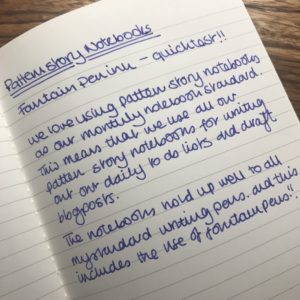 Pattern Story Notebooks
Fountain Pen ink - quick test!!
We love using pattern story notebooks
as our monthly notebook standard.
This means that we use all our
pattern story notebooks for writing
out our daily to do lists and draft
blogposts.
The notebooks hold up well to all
my standard writing pens. and this
includes the use of fountain pens!!